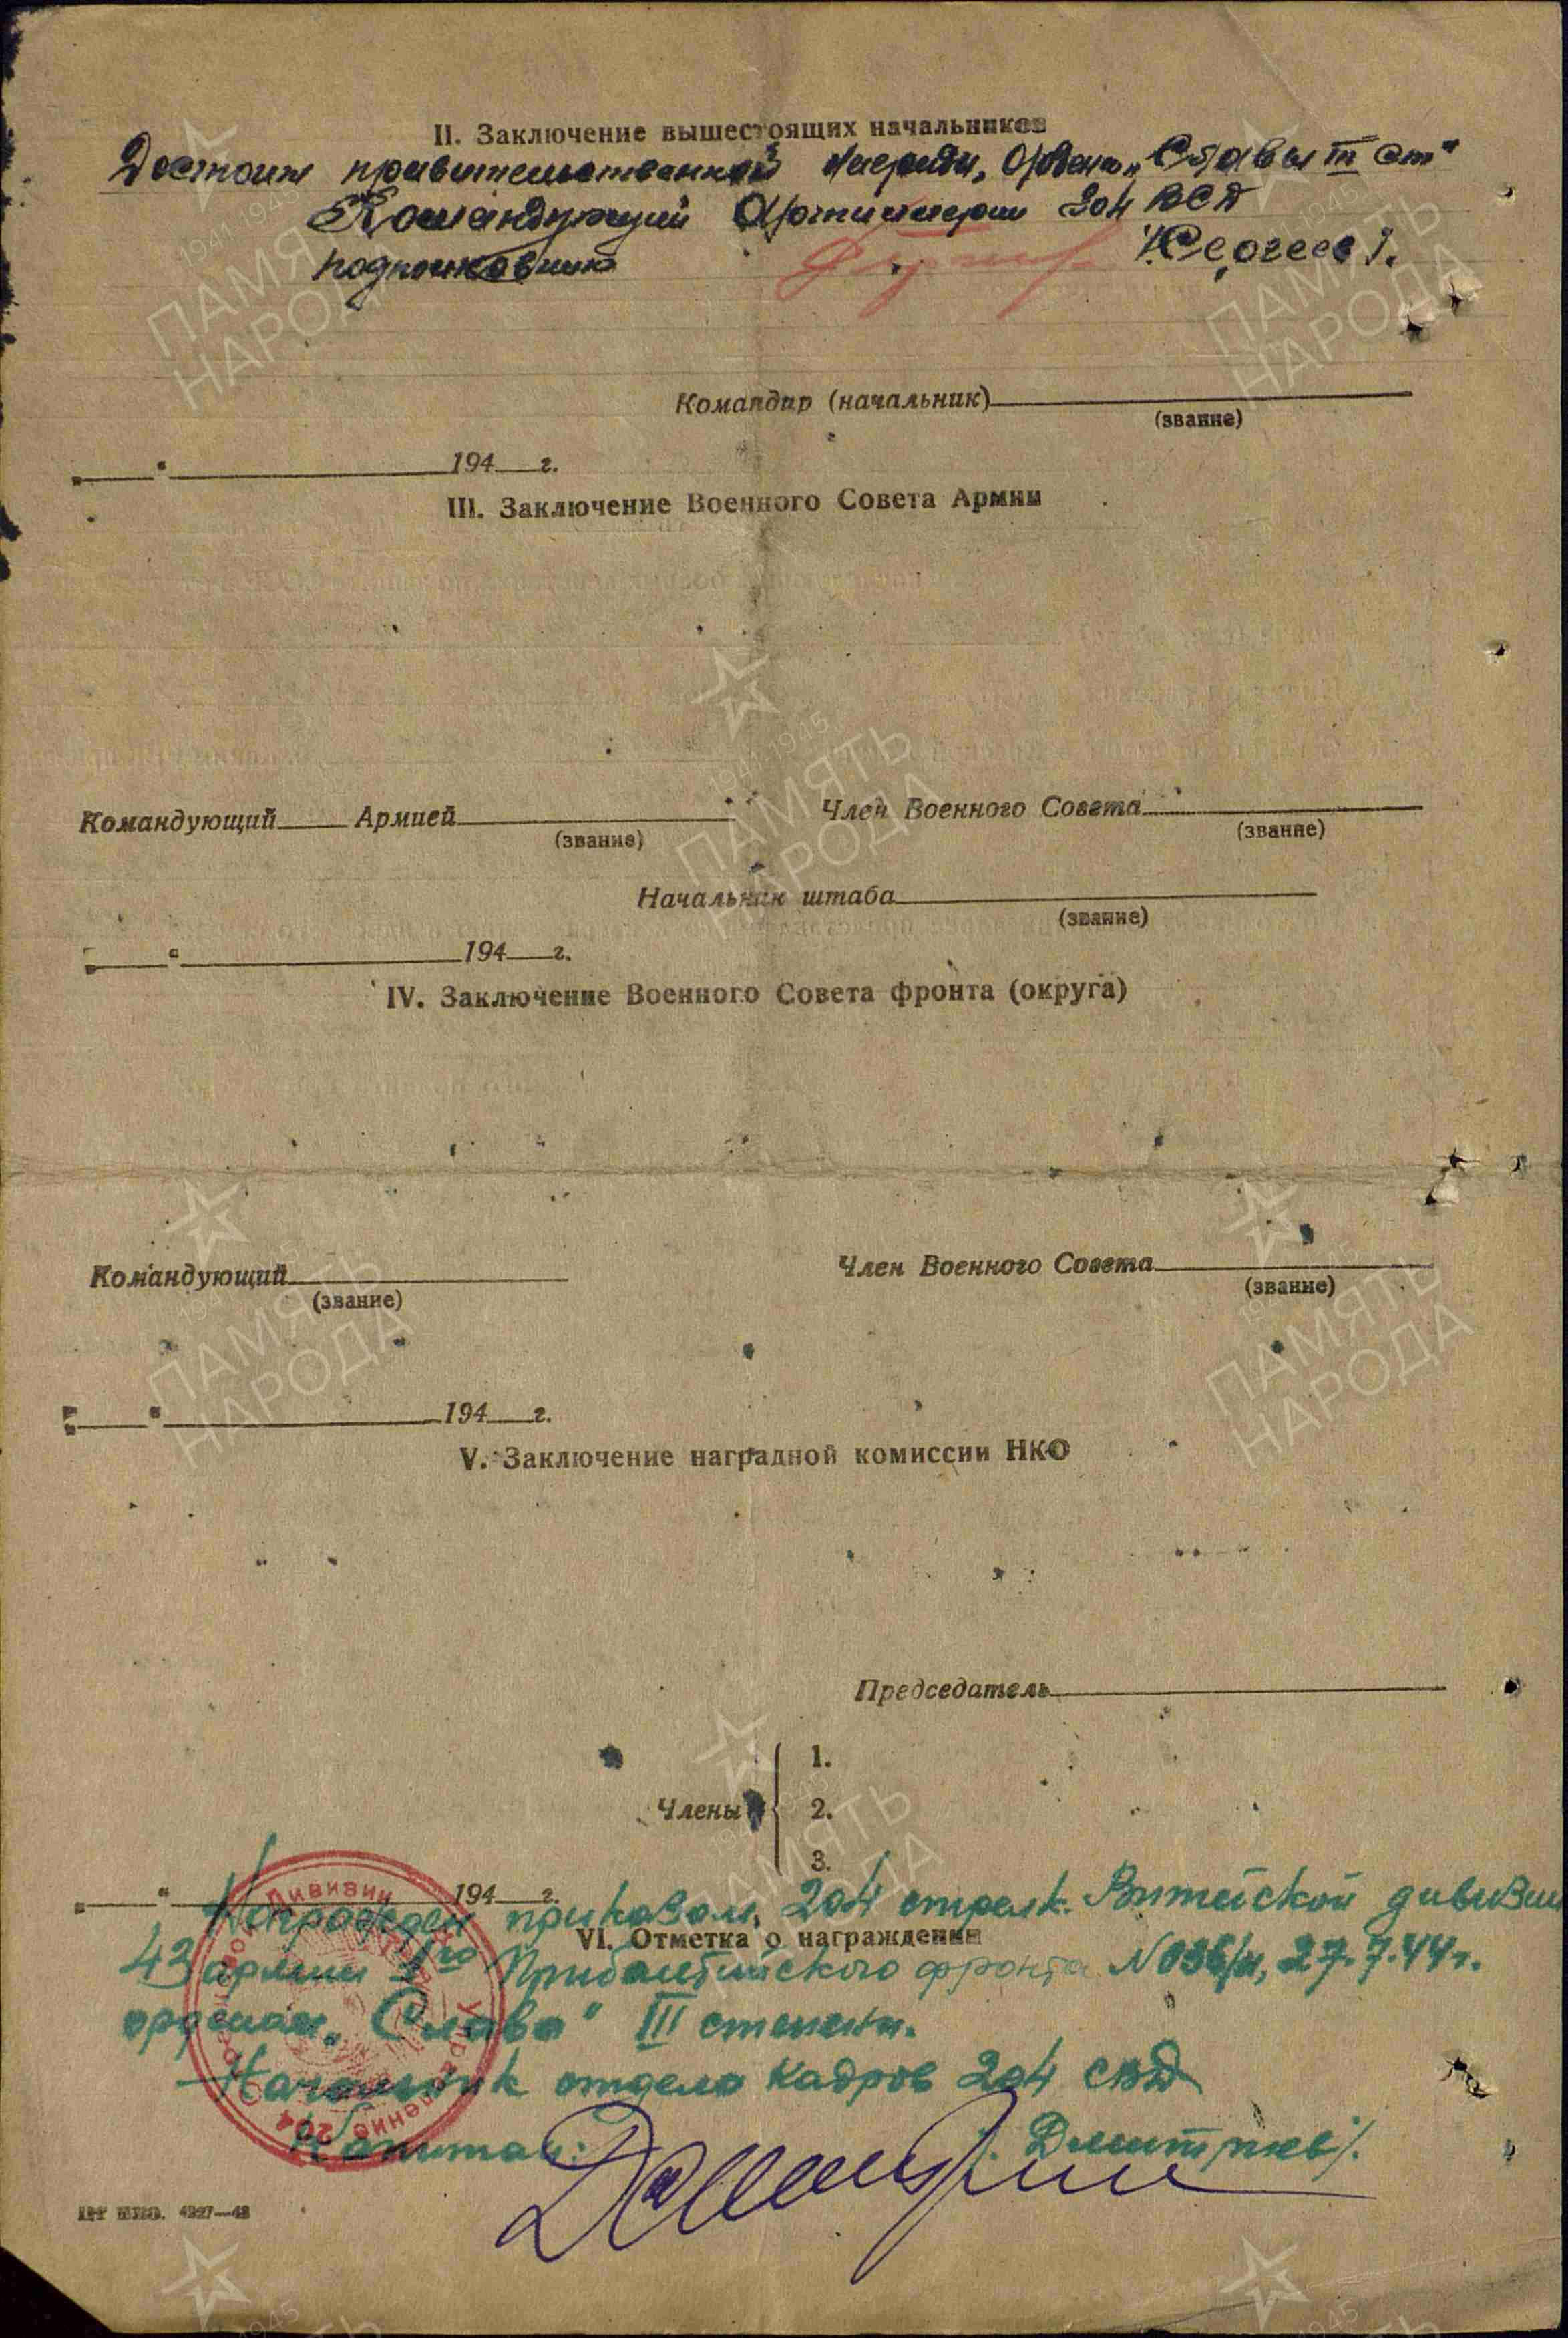 II. Заключение вышестоящих начальников
Достоин правительственной награды, Ордена „Славы III ст“
Командующий Артиллерии 204 ВСД
подполковник /Сергеев/.
Командир (начальник)
(звание)
„ “ 194 г.
III. Заключение Военного Совета Армии
Командующий Армией Член Военного Совета
(звание) (звание)
Начальник штаба
(звание)
„ “ 194 г.
IV. Заключение Военного Совета фронта (округа)
Командующий Член Военного Совета
(звание) (звание)
„ “ 194 г.
V. Заключение наградной комиссии НКО
Председатель
Члены
1.
2.
3.
„ “ 194 г.
Награжден приказом 204 стрелк. Витебской дивизии
VI. Отметка о награждении
43 армии 1го Прибалтийского фронта N 036/н, 27.7.44 г.
орденом „Слава“ III степени.
Начальник отдела кадров 204 СВД
Капитан: /. Дмитриев/.
204 Управление Дивизии
ПАМЯТЬ
НАРОДА
1941 1945